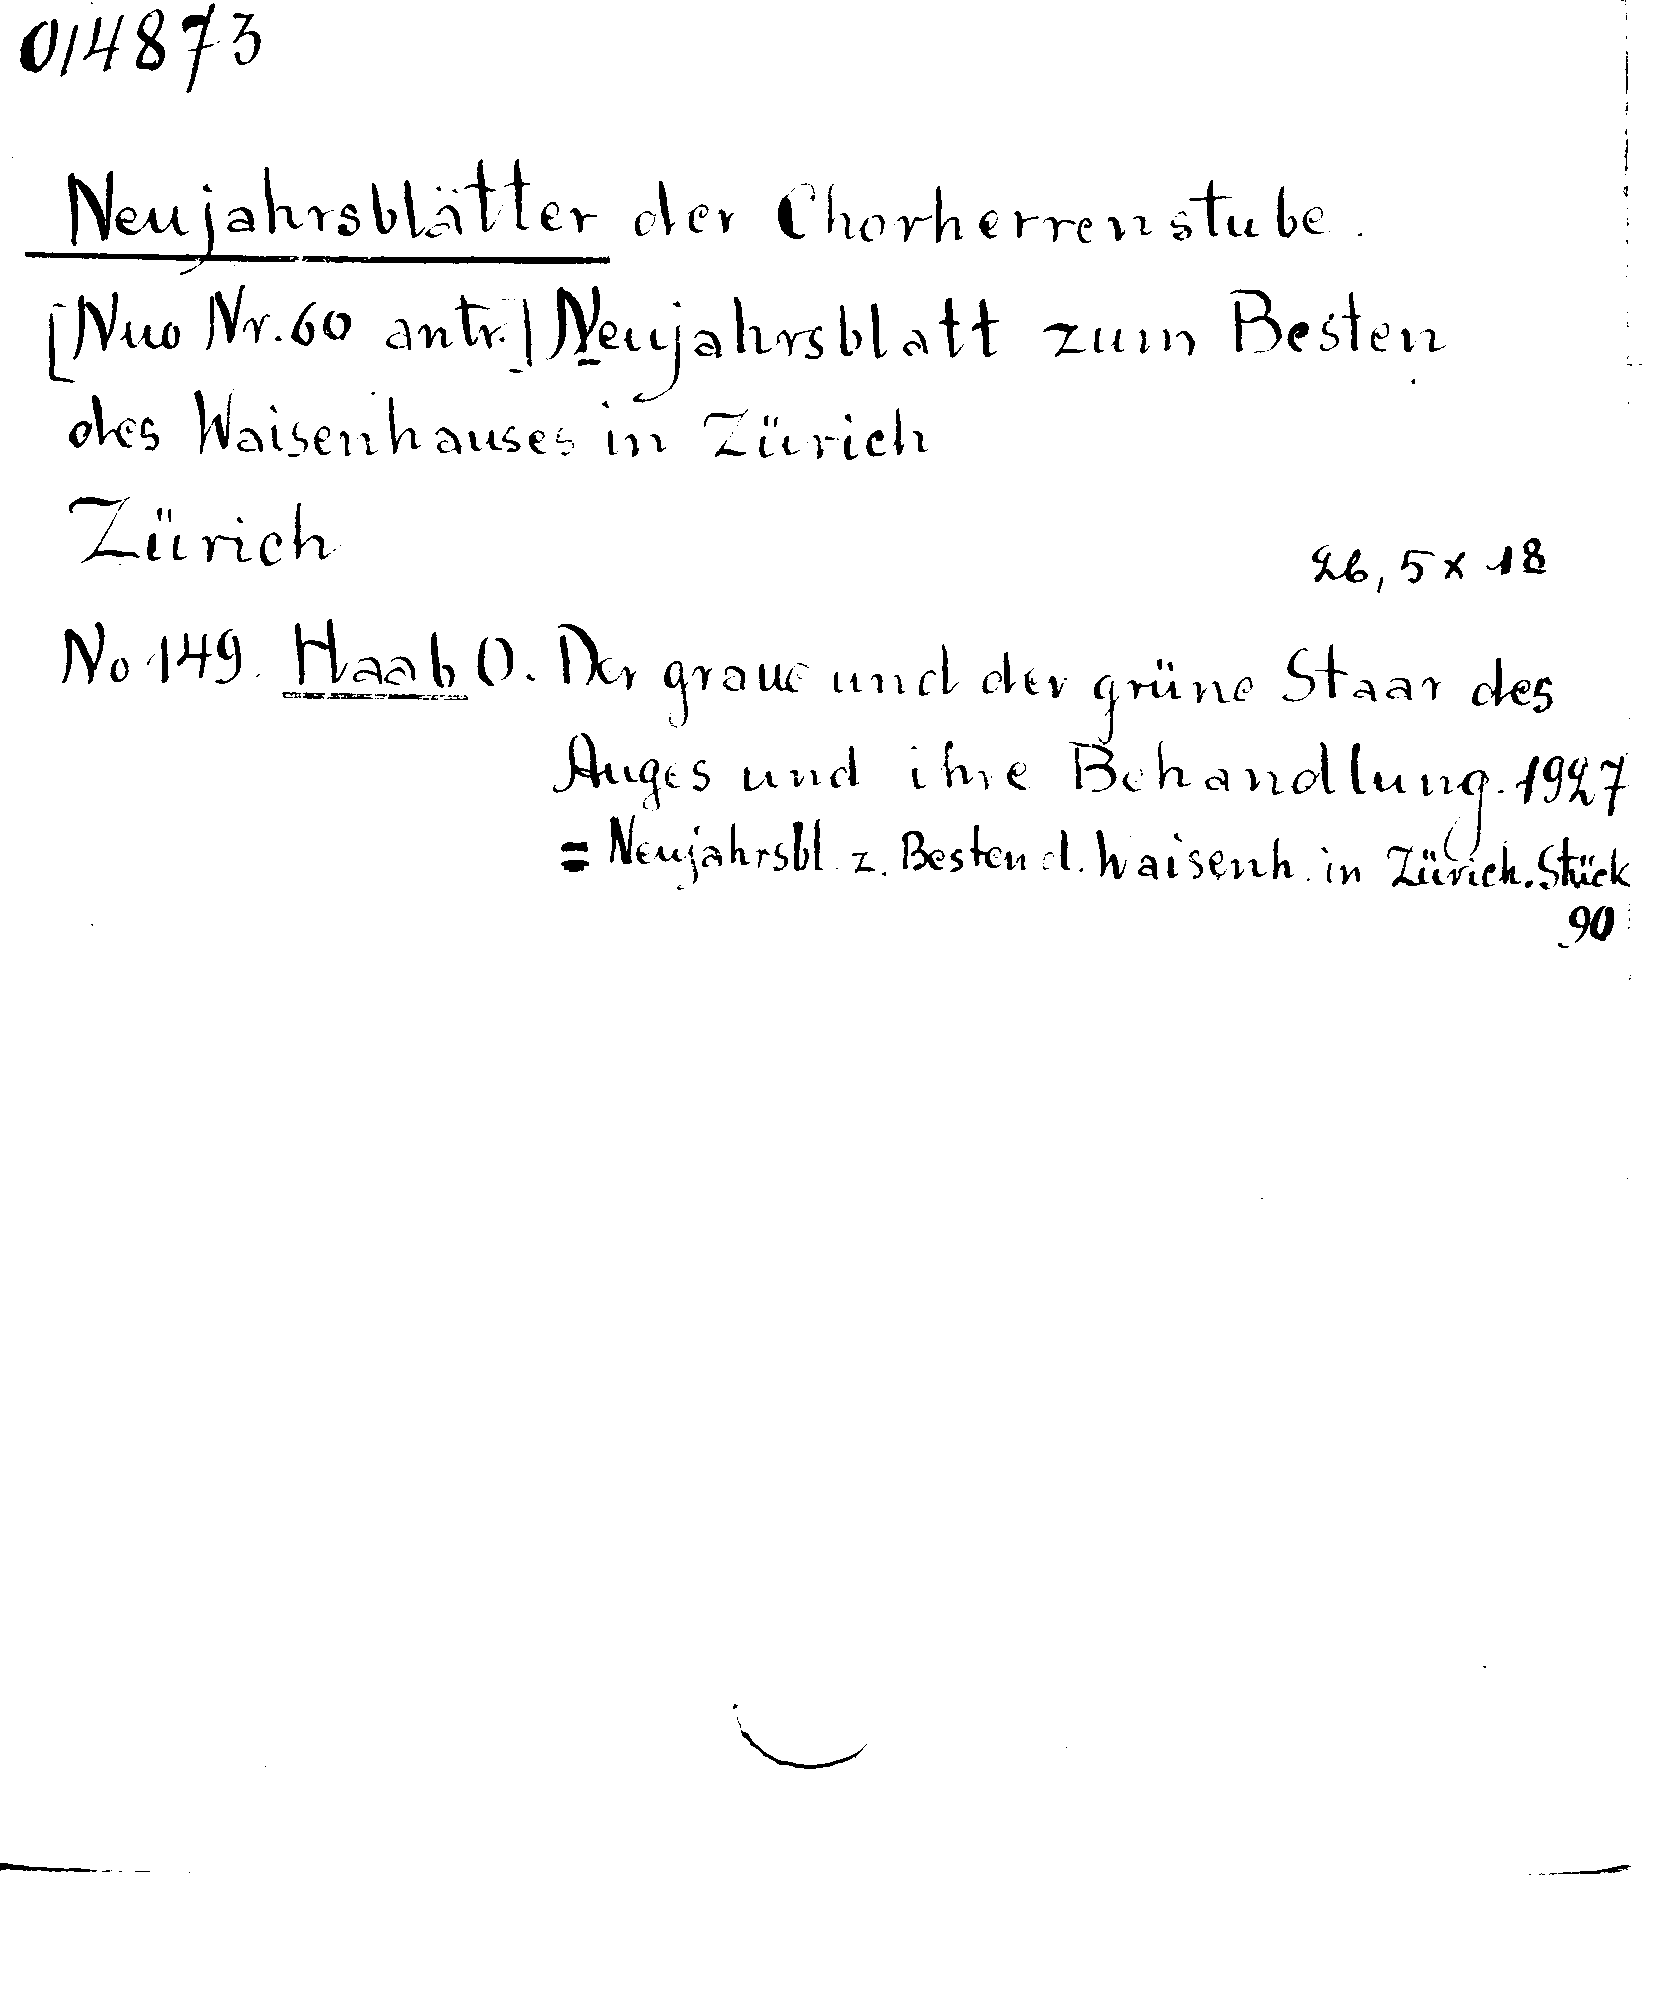 014873
Neujahrsblätter der Chorherrenstube.
[Nuo Nr. 60 antr.] Neujahrsblatt zum Besten
des Waisenhauses in Zürich
Zürich
26,5 x 18
No 149. Haab O. Der graue und der grüne Staar des
Auges und ihre Behandlung. 1927
= Neujahrsbl. z. Besten d. Waisenh. in Zürich. Stück
90